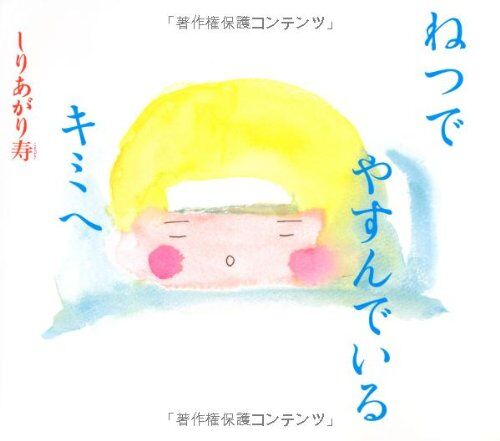 「著作権保護コンテンツ」
ねつで
やすんでいる
キミへ
しりあがり寿
「著作権保護コンテンツ」